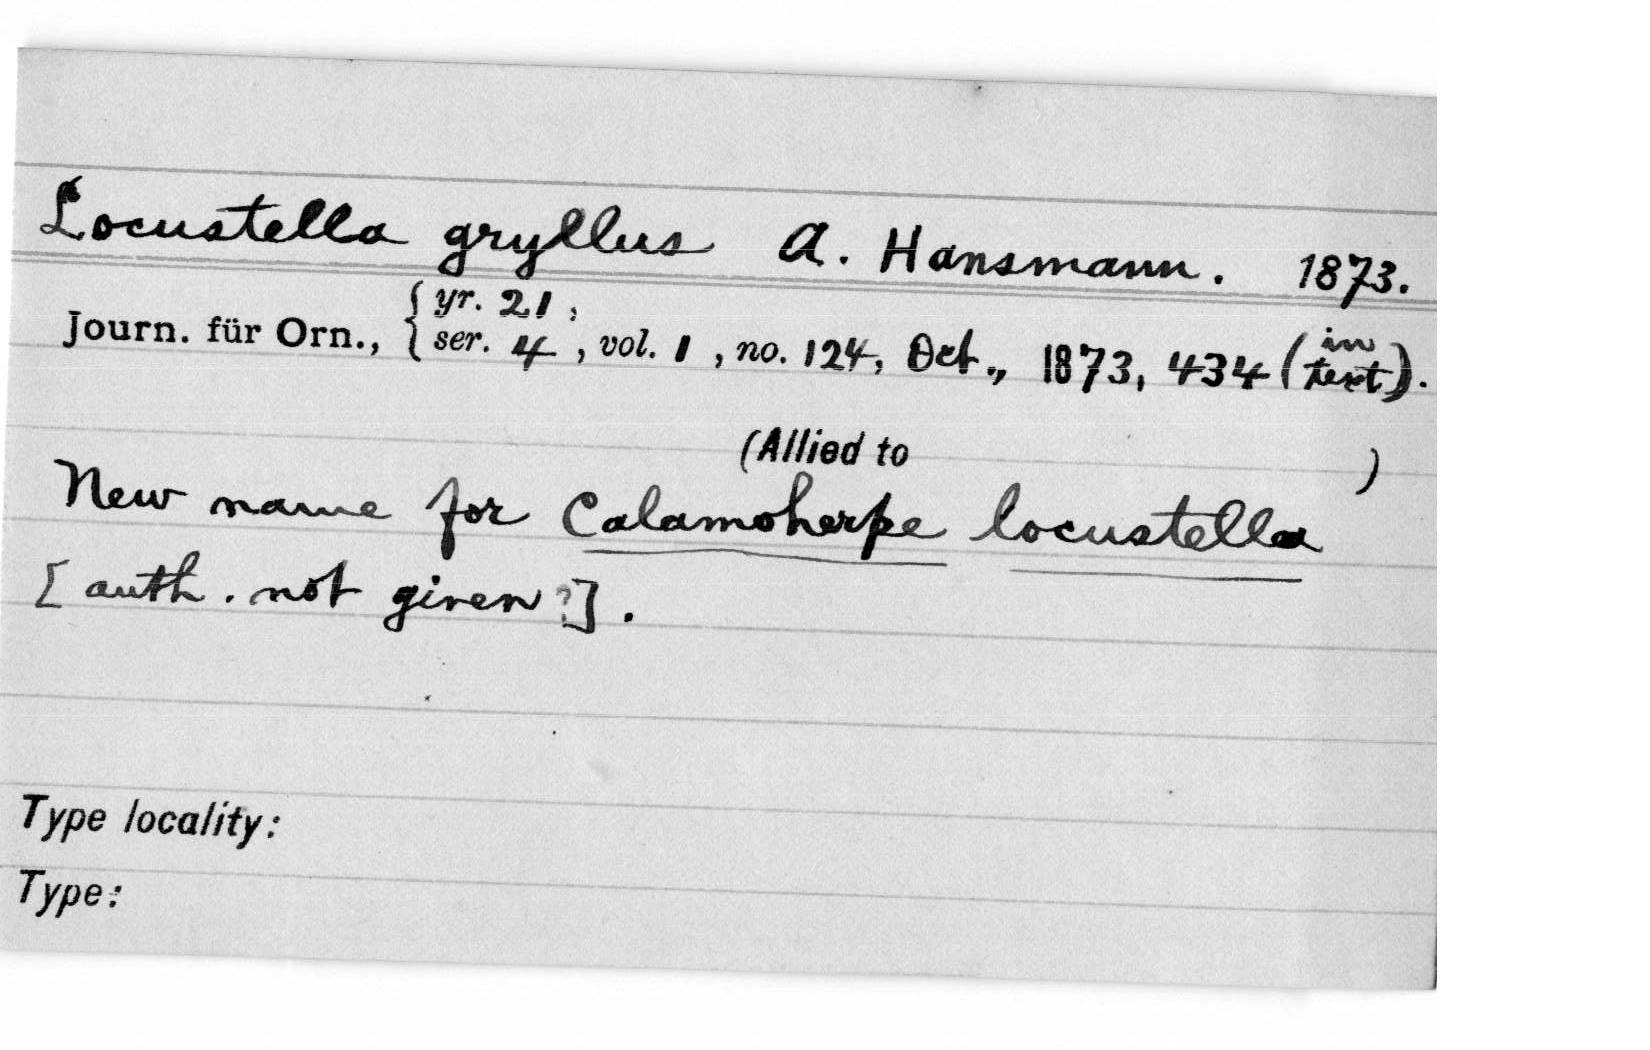 Locustella gryllus A. Hansmann. 1873.
Journ. für Orn., { yr. 21,
ser. 4, vol. 1, no. 124, Oct., 1873, 434 (in text).
(Allied to )
New name for Calamoherpe locustella
[auth. not given?].
Type locality:
Type: